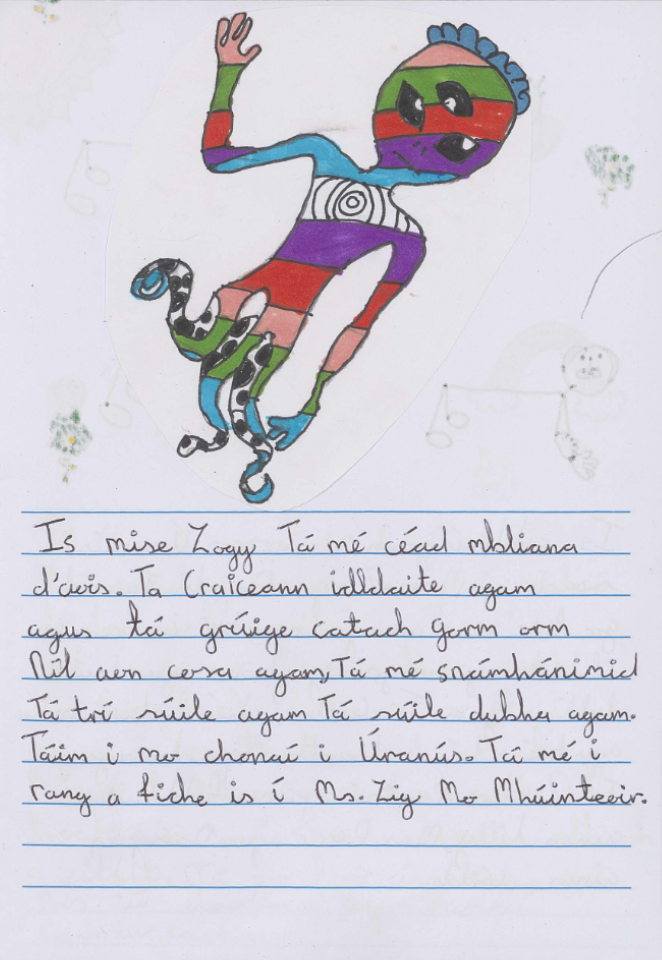 Is mise Zogy Tá mé céad mbliana
d'aois. Ta Craiceann ildldaite agam
agus tá grúige catach gorm orm
Níl aon cosa agam, Tá mé snámhánimid
Tá trí súile agam Tá súile dubha agam.
Táim i mo chonaí i Úranús. Tá mé i
rang a fiche is í Ms. Zig Mo Mhúinteoir.